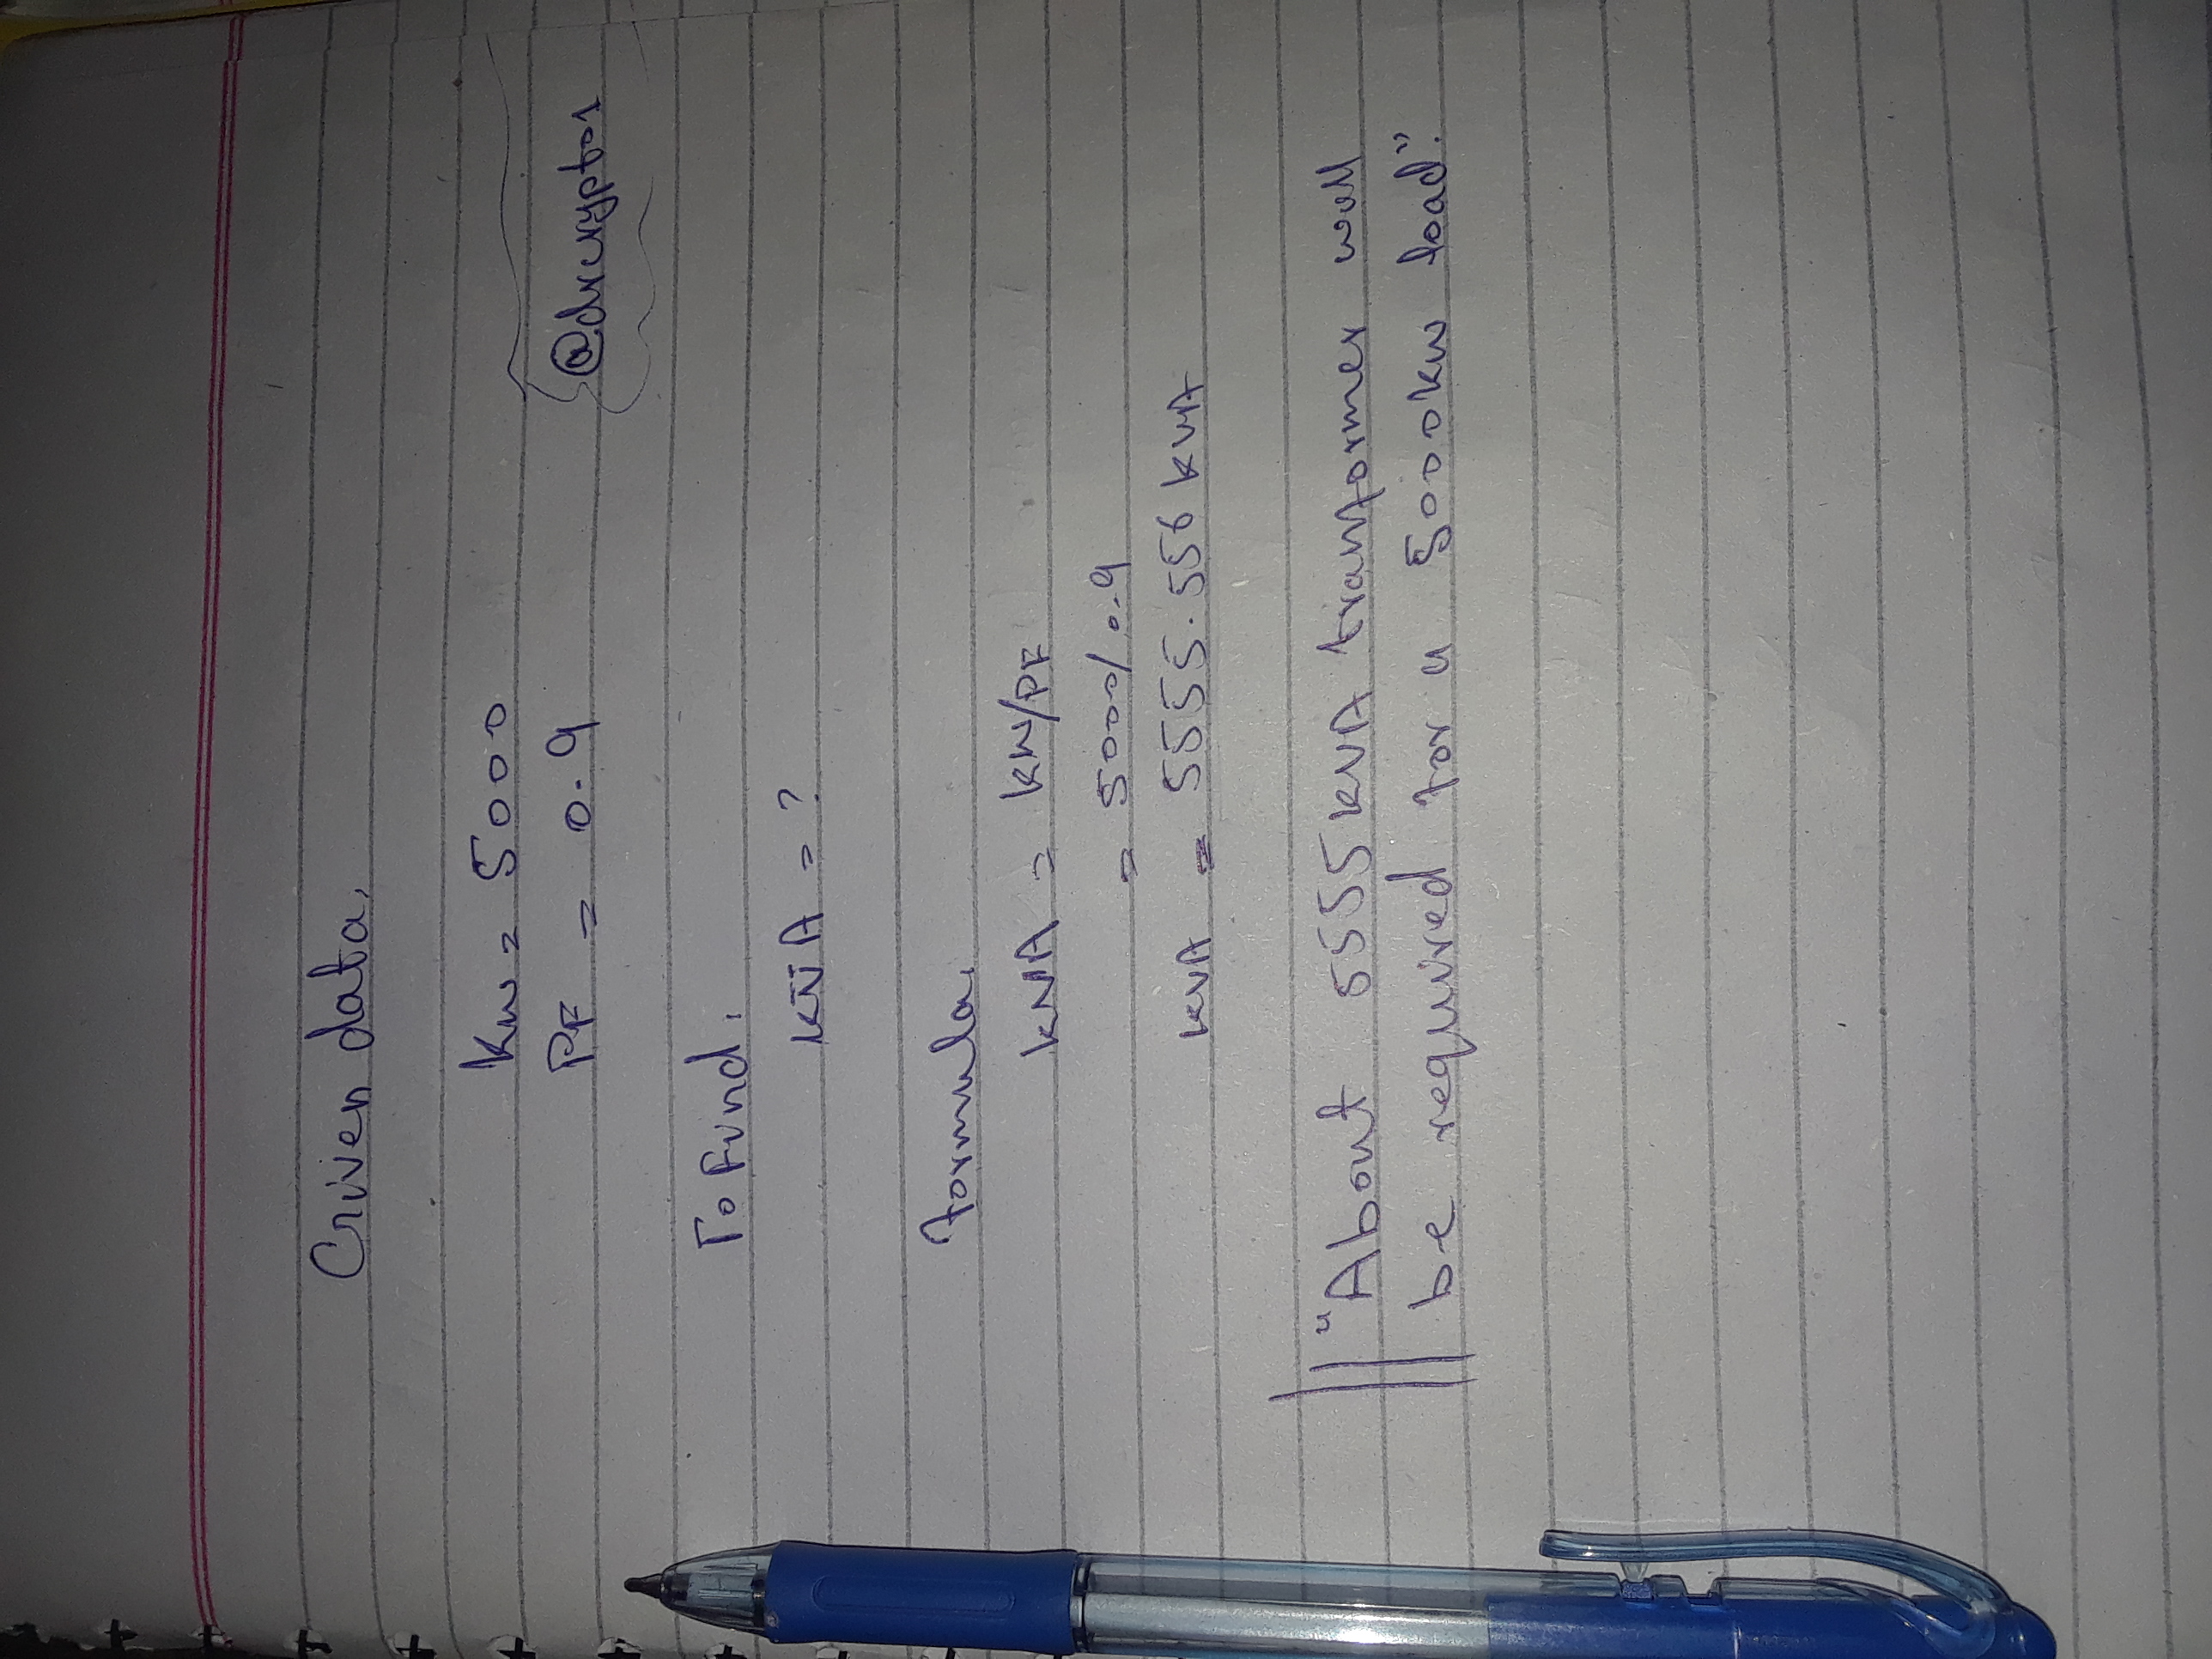 Given data,
kw = 5000
@drcryptor
PF = 0.9
To Find:
kVA = ?
formula,
kVA = kW/PF
= 5000/0.9
kVA = 5555.556 kVA
"About 5555 kVA transformer will
be required for a 5000kw load".